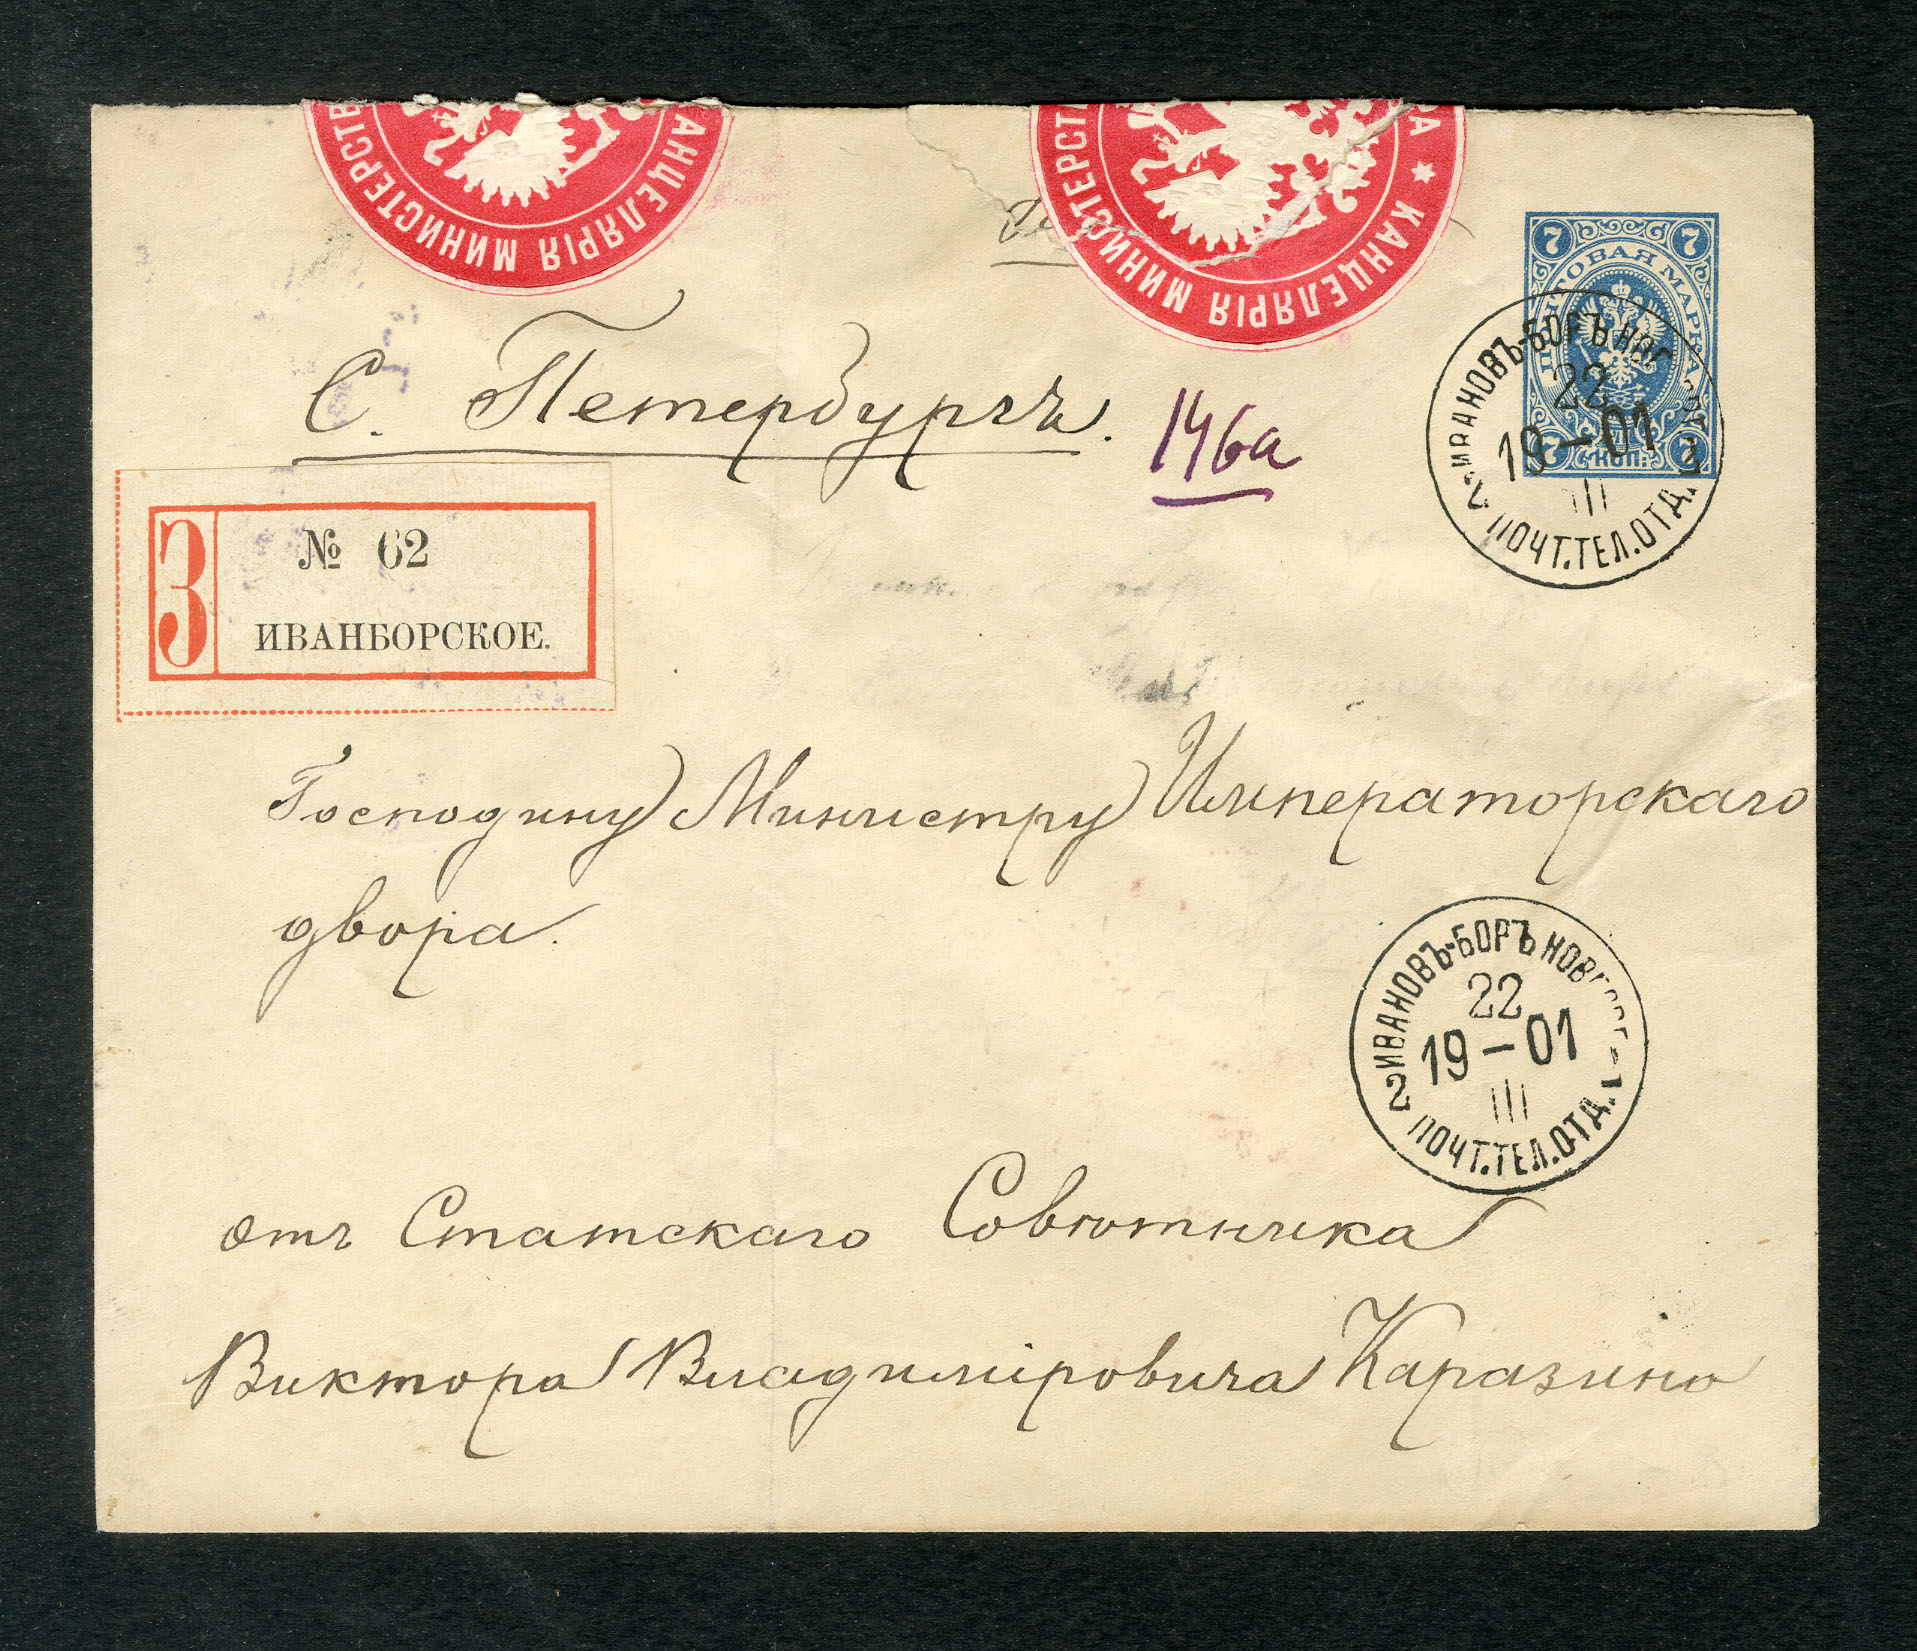 МИНИСТЕРСТВ
КАНЦЕЛЯРІЯ
МИНИСТЕРСТ
РА * КАНЦЕЛЯРІЯ
7 7
ПОЧТОВАЯ МАРКА
7 КОП. 7
С. Петербургъ.
146а
ИВАНОВЪ-БОРЪ НОВ
22
19-01
III
2 ПОЧТ.ТЕЛ.ОТД.
З
№ 62
ИВАНБОРСКОЕ.
Господину Министру Императорскаго
двора.
ИВАНОВЪ-БОРЪ НОВГ
22
19-01
III
2 ПОЧТ.ТЕЛ.ОТД. 1
отъ Статскаго Совѣтника
Виктора Владиміровича Каразина